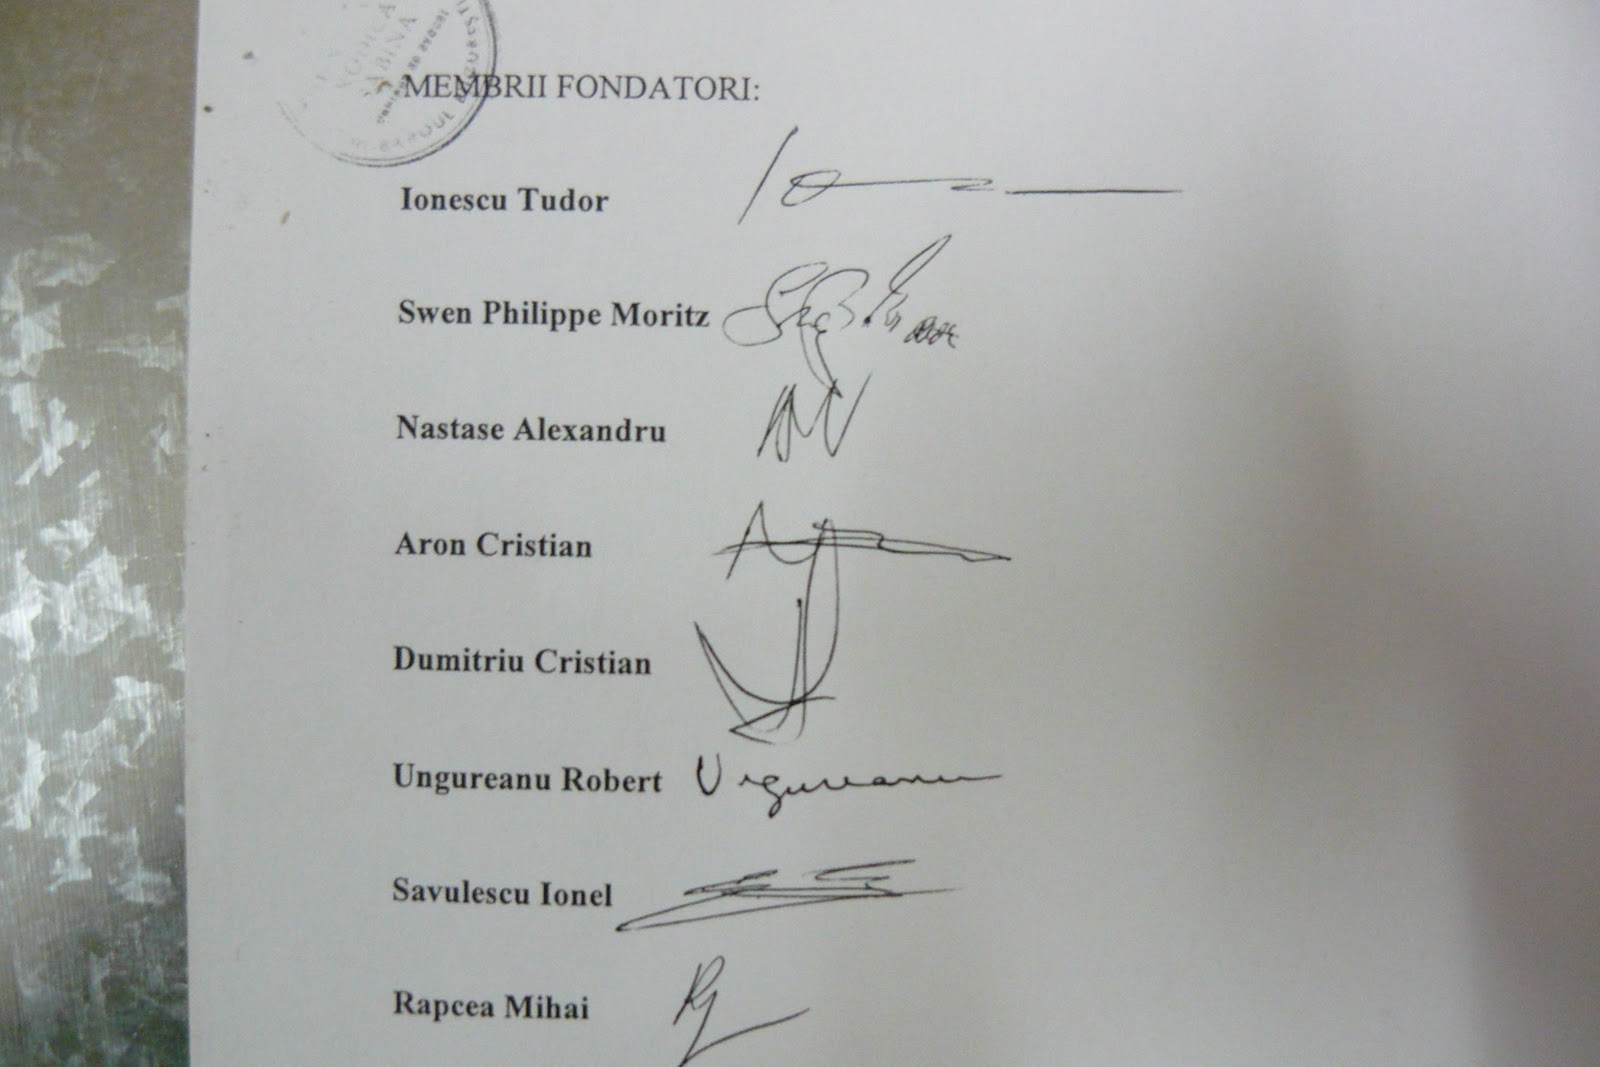 MEMBRII FONDATORI:
Ionescu Tudor
Swen Philippe Moritz
Nastase Alexandru
Aron Cristian
Dumitriu Cristian
Ungureanu Robert Ungureanu
Savulescu Ionel
Rapcea Mihai